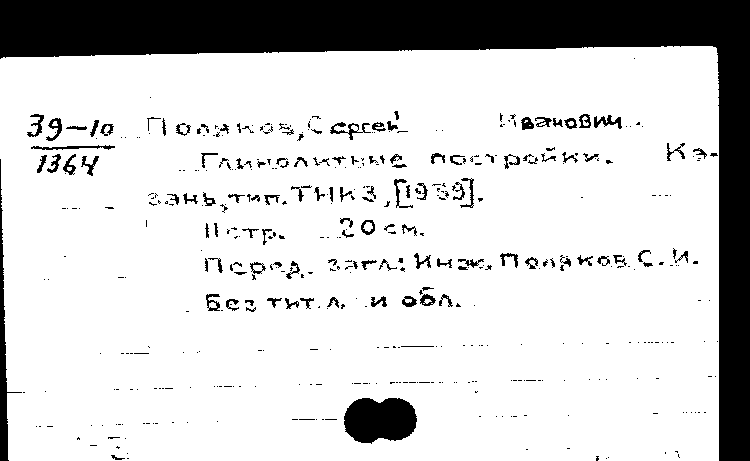 39-10 Поляков, Сергей Иванович.
1364 Глинолитные постройки. Ка-
зань, тип. ТНКЗ, [1939].
11 стр. 20 см.
Перед. загл.: Инж. Поляков С. И.
Без тит. л. и обл.